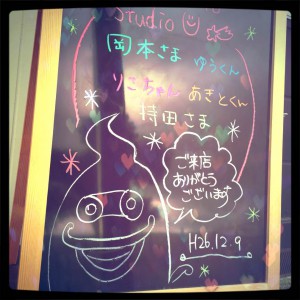 Studio
岡本さま
ゆうくん
りこちゃん
あきとくん
持田さま
ご来店
ありがとう
ございます
H26.12.9